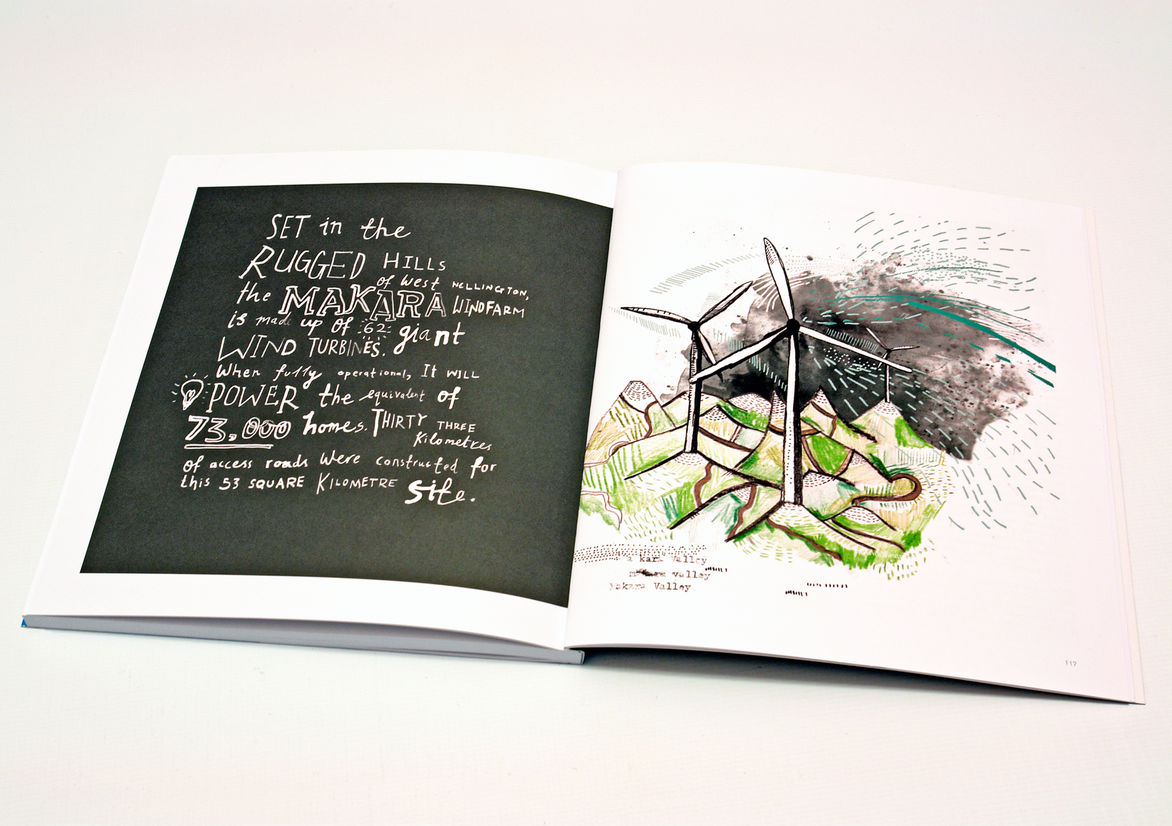 SET in the
RUGGED HILLS
of West WELLINGTON,
the MAKARA WINDFARM
is made up of :62: giant
WIND TURBINES.
When fully operational, It WILL
POWER the equivalent of
73,000 homes. THIRTY THREE
Kilometres
of access roads were constructed for
this 53 SQUARE KILOMETRE site.
kara Valley
valley
Makara Valley
117